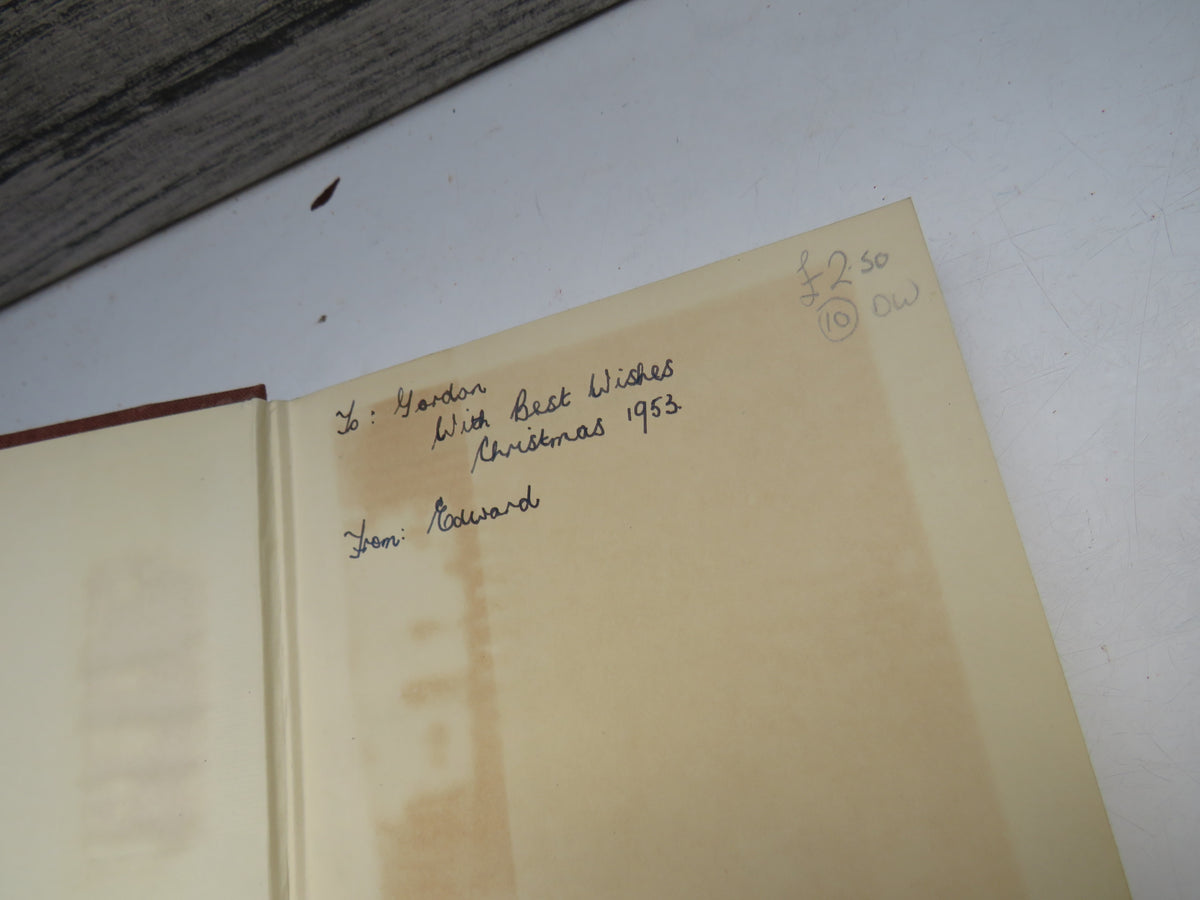 £2.50
10 DW
To: Gordon
With Best Wishes
Christmas 1953.
From: Edward